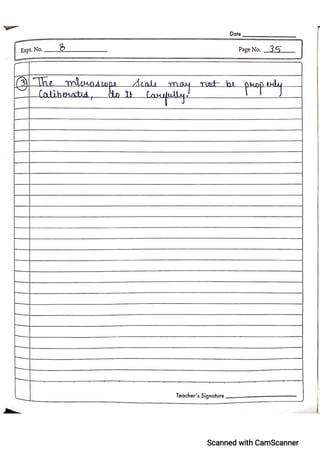 Date
Expt. No. 8
Page No. 35
③ The microscope scale may not be properly
Caliberated, do it Carefully.
Teacher's Signature
Scanned with CamScanner